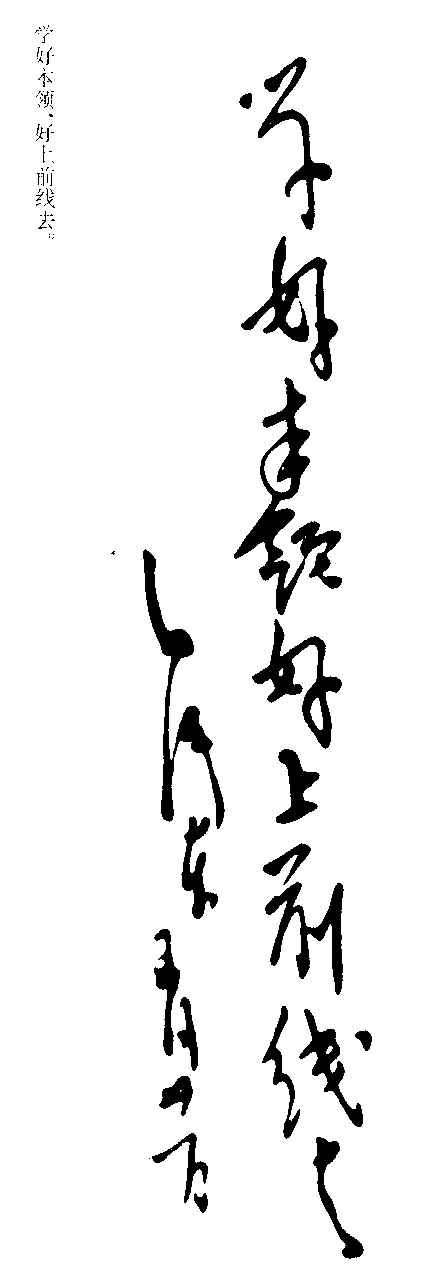 学好本领好上前线去
毛泽东
五月四日
学好本领，好上前线去。